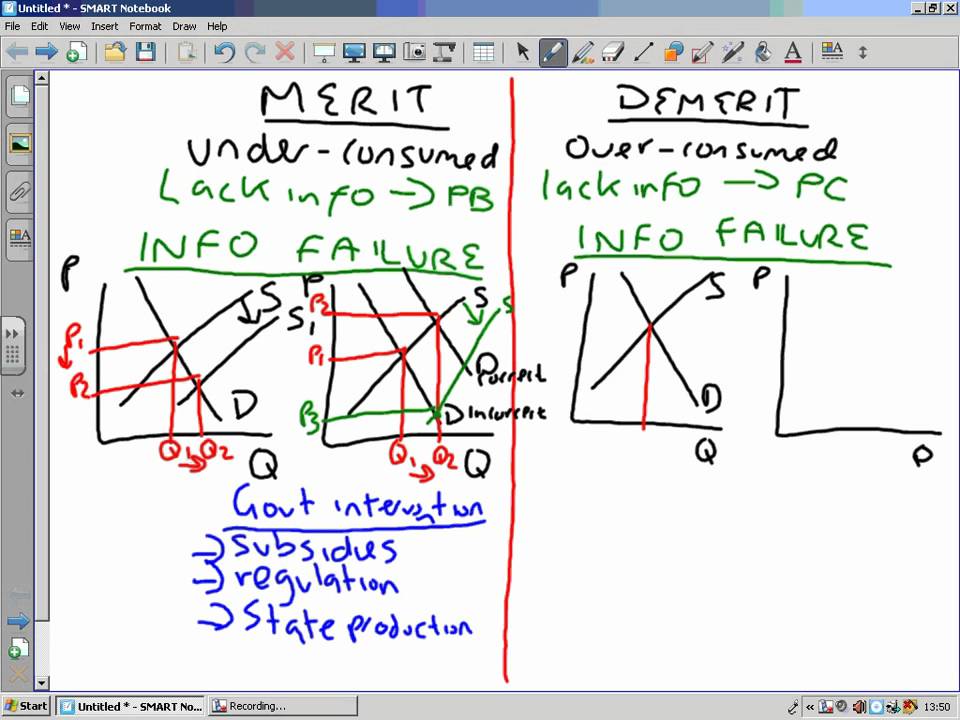 Untitled * - SMART Notebook
File Edit View Insert Format Draw Help
MERIT
under-consumed
Lack info -> PB
INFO FAILURE
DEMERIT
Over-consumed
lack info -> PC
INFO FAILURE
P
S
S1
P1
P2
D
Q1
Q2
Q
P
P2
S
S
P1
D correct
P3
D incorrect
Q1
Q2
Q
P
S
D
Q
P
Govt intervention
-> Subsidies
-> regulation
-> State production
Start
Untitled * - SMART No...
Recording...
13:50